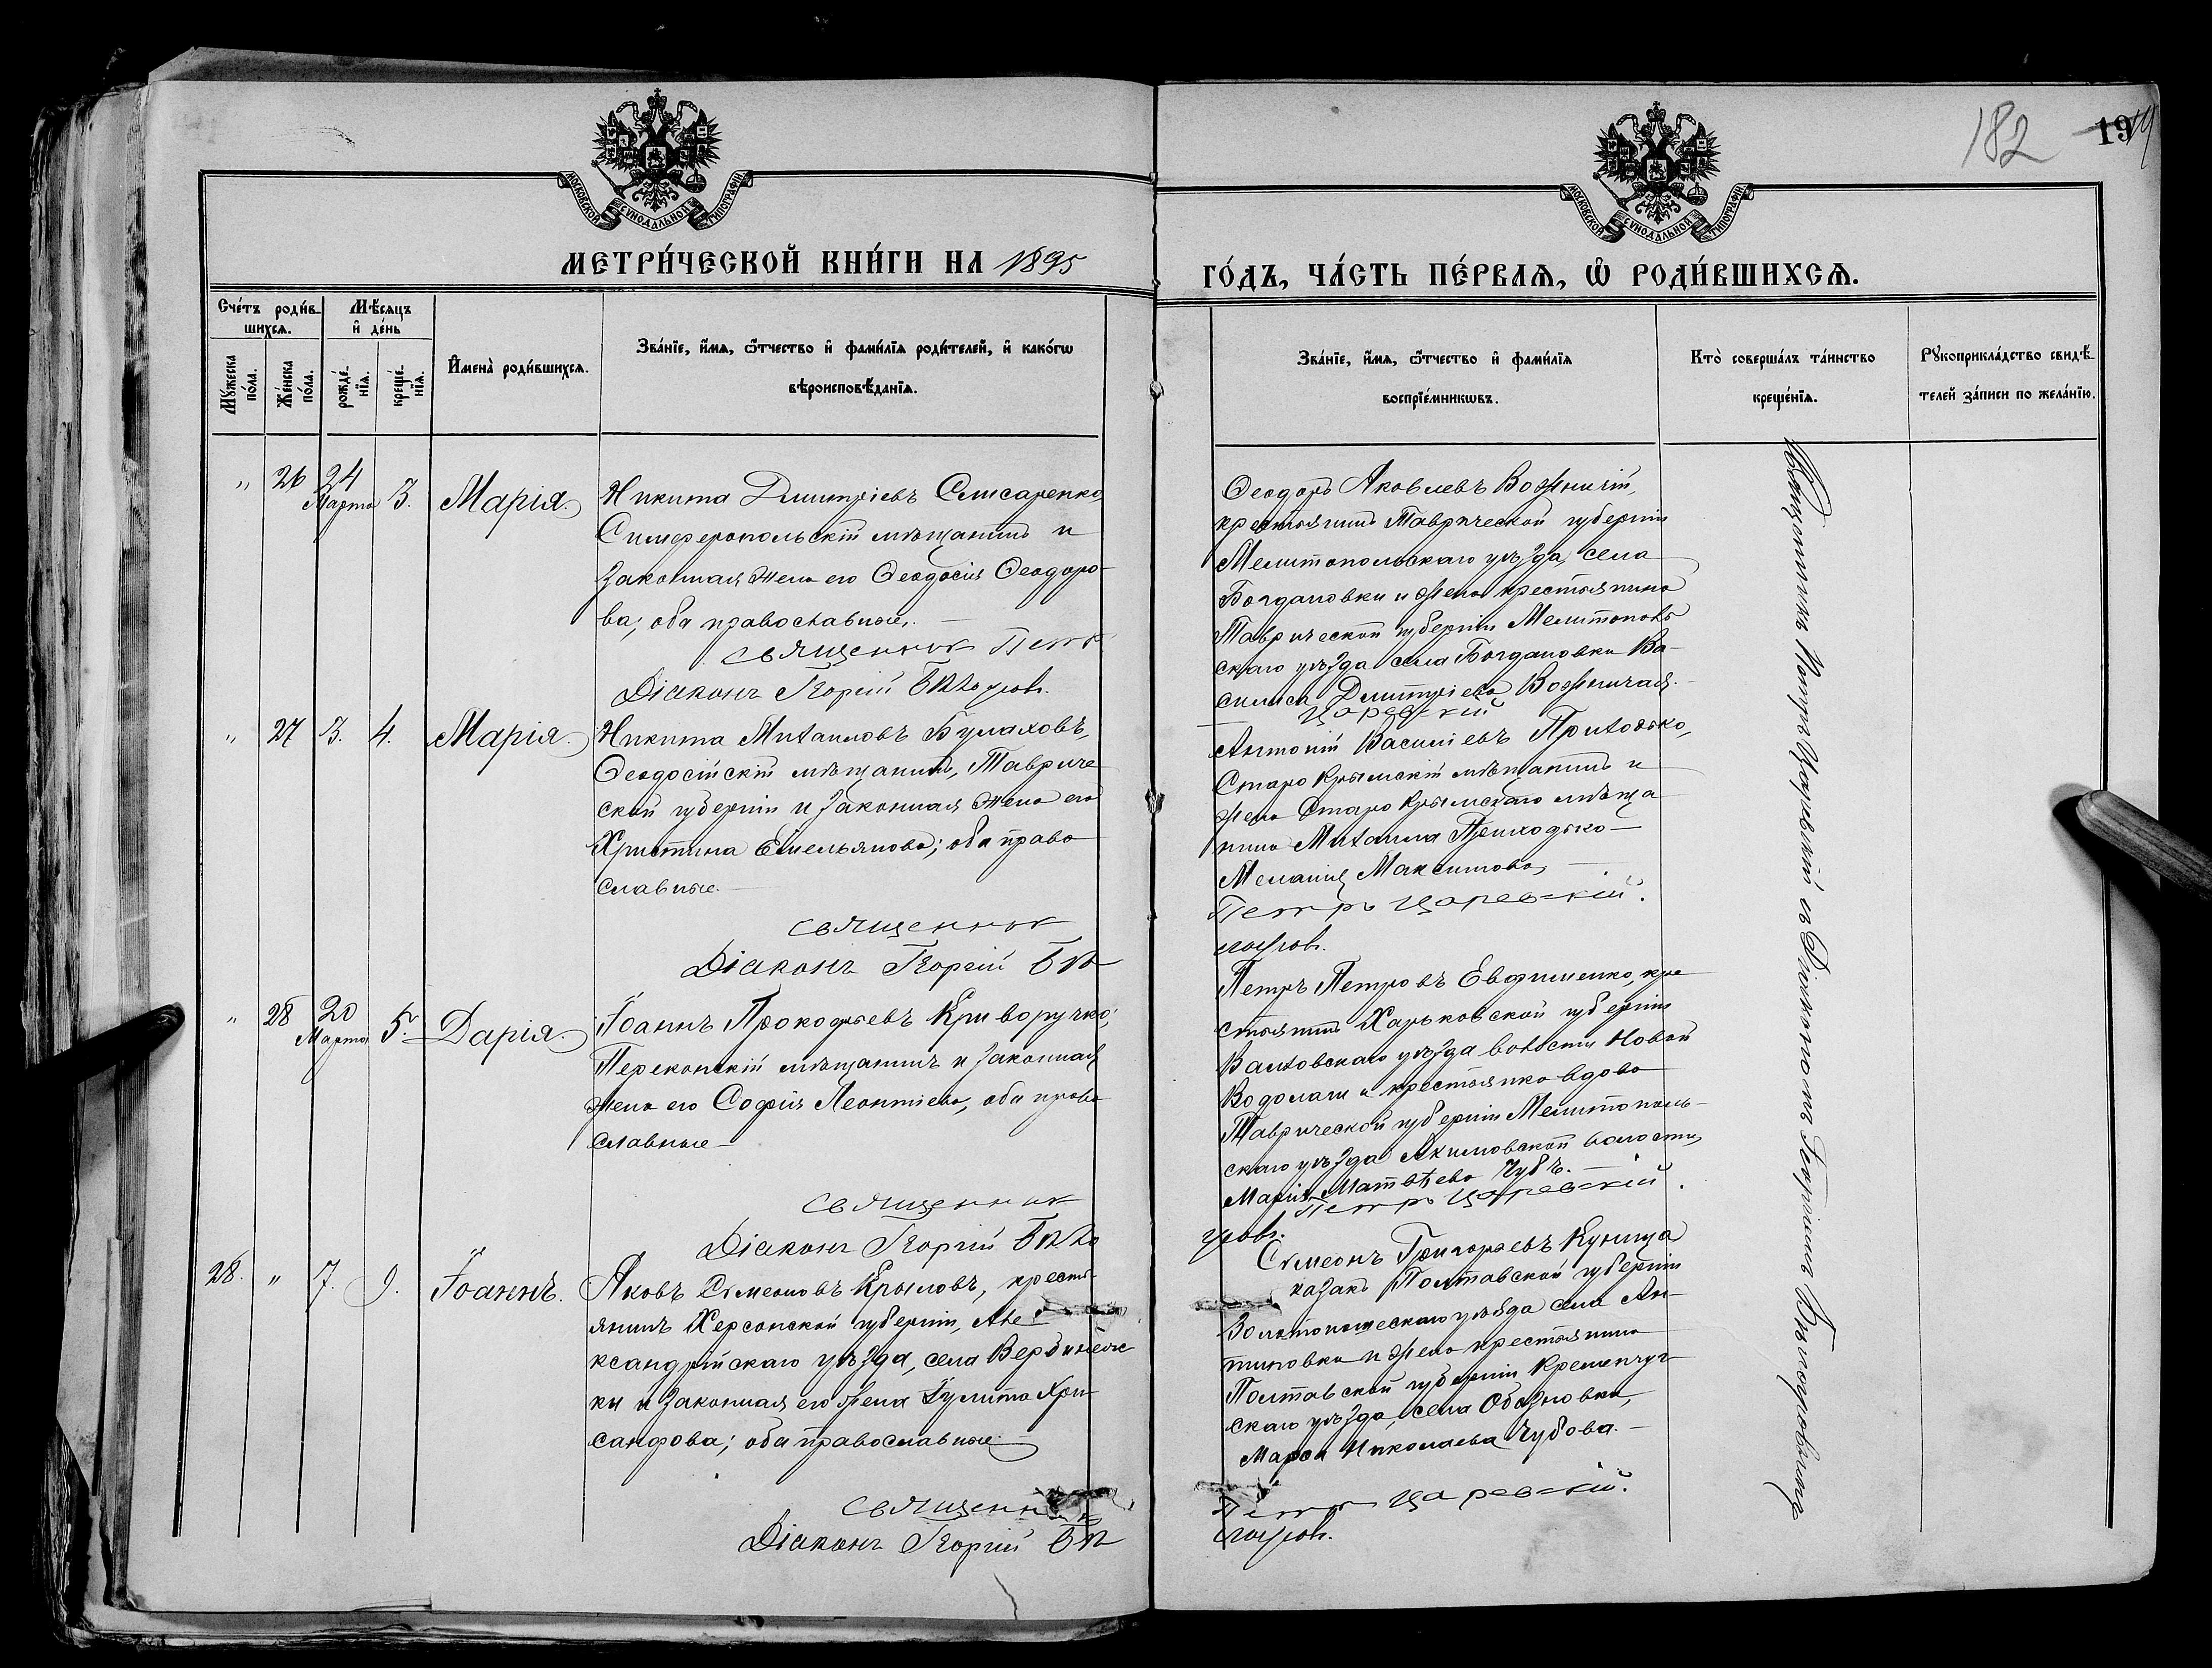 182
19
МОСКОВСКОЙ СУНОДАЛЬНОЙ ТИПОГРАФІИ
МОСКОВСКОЙ СУНОДАЛЬНОЙ ТИПОГРАФІИ
МЕТРИ́ЧЕСКОЙ КНИ́ГИ НА 1895
ГО́ДЪ, ЧА́СТЬ ПЕ́РВАѦ, Ѽ РОДИ́ВШИХСѦ.
Сче́тъ роди́в-
шихсѧ.
Мꙋжеска по́ла.
Же́нска по́ла.
Мѣ́сѧцъ
и҆ де́нь
рожде́-
нїѧ.
креще́-
нїѧ.
И҆мена̀ роди́вшихсѧ.
Зва́нїе, и҆́мѧ, ѻ҆́тчество и҆ фами́лїѧ роди́телей, и҆ како́гѡ
вѣроисповѣ́данїѧ.
Зва́нїе, и҆́мѧ, ѻ҆́тчество и҆ фами́лїѧ
воспрїе́мникѡвъ.
Кто̀ соверша́лъ та́инство
креще́нїѧ.
Рꙋкоприкла́дство свидѣ́-
телей за́писи по жела́нїю.
" 26 24 Марта 3. Марія.
Никита Димитріевъ Слисаренко
Симферопольскій мѣщанинъ и
законная жена его Ѳеодосія Ѳеодоро-
ва; оба православные.
Священник Петр
Діаконъ Георгій Бѣлоусов.
Ѳеодоръ Яковлевъ Возничій,
крестьянинъ Таврической губерніи
Мелитопольскаго уѣзда, села
Богдановки и жена крестьянина
Таврической губерніи Мелитополь
скаго уѣзда села Богдановки Ва-
силиса Димитріева Возничая.
Царевский
" 27 3. 4. Марія.
Никита Михаиловъ Булаховъ,
Ѳеодосійскій мѣщанинъ, Тавриче
ской губерніи и законная жена его
Христина Емельянова; оба право
славные.
Священник
Діаконъ Георгій Бѣ
Антоній Василіевъ Приходько,
Старо Крымскій мѣщанинъ и
жена Старо Крымскаго мѣща
нина Михаила Приходько —
Меланія Максимова
Петръ Царевскій.
лоусов.
" 28 20 Марта 5 Дарія.
Іоаннъ Прокофьевъ Криворучко;
Перекопскій мѣщанинъ и законная
жена его Софія Леонтіева, оба право
славные —
Священник
Діаконъ Георгій Бѣло
Петръ Петровъ Евфименко, кре
стьянинъ Харьковской губерніи
Валковскаго уѣзда волости Новой
Водолаги и крестьянка вдова
Таврической губерніи Мелитополь-
скаго уѣзда Акимовской волости,
Марія Матвѣева Чубъ.
Петръ Царевскій.
усов.
28. " 7. 9. Іоаннъ.
Яковъ Симеоновъ Крыловъ, кресть-
янинъ Херсонской губерніи, Але-
ксандрійскаго уѣзда, села
ки и законная его жена Іулита Хри-
санфова; оба православные.
Священник
Діаконъ Георгій Бѣ
Симеонъ Григорьевъ Куница
казакъ Полтавской губерніи
Золотоношескаго уѣзда села Ан-
типовки и жена крестьянина
Полтавской губерніи Кременчуг-
скаго уѣзда, села Обазновки,
Марфа Николаева Чубова. —
Петръ Царевскій.
лоусов.
Священникъ Петръ Царевскій съ Діакономъ Георгіемъ Бѣлоусовымъ